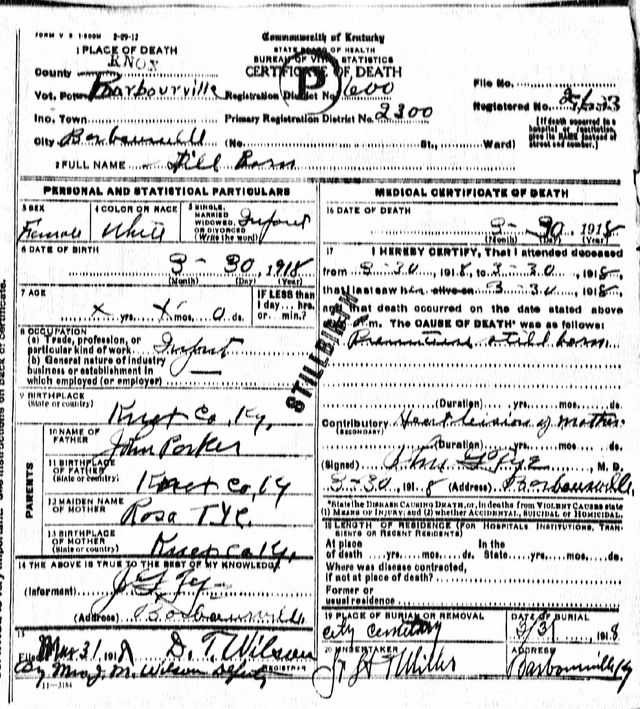 FORM V S 1-500M 2-29-12
Commonwealth of Kentucky
STATE BOARD OF HEALTH
BUREAU OF VITAL STATISTICS
CERTIFICATE OF DEATH
P
1 PLACE OF DEATH
County KNOX
Vot. Barbourville
Registration District No. 600
File No.
Registered No.
Inc. Town
Primary Registration District No. 2300
City Barbourville (No. St., Ward)
[If death occurred in a hospital or institution, give its NAME instead of street and number.]
2 FULL NAME Still Born
PERSONAL AND STATISTICAL PARTICULARS
3 SEX Female
4 COLOR OR RACE White
5 SINGLE, MARRIED WIDOWED, OR DIVORCED (Write the word) Infant
6 DATE OF BIRTH
3-30, 1918
(Month) (Day) (Year)
7 AGE
x yrs. x mos. 0 ds.
IF LESS than 1 day... hrs. or... min.?
8 OCCUPATION
(a) Trade, profession, or particular kind of work Infant
(b) General nature of industry business or establishment in which employed (or employer)
9 BIRTHPLACE
(State or country) Knox Co, Ky.
PARENTS
10 NAME OF FATHER John Parker
11 BIRTHPLACE OF FATHER (State or country) Knox Co, Ky
12 MAIDEN NAME OF MOTHER Rosa
13 BIRTHPLACE OF MOTHER (State or country) Knox Co Ky.
14 THE ABOVE IS TRUE TO THE BEST OF MY KNOWLEDGE
(Informant)
(Address) Barbourville
15
Filed Mar 31, 1918 D. T. Wilson
REGISTRAR
By Mrs J. M. Wilson Deputy
11-3184
MEDICAL CERTIFICATE OF DEATH
16 DATE OF DEATH
3-30 1918
(Month) (Day) (Year)
17 I HEREBY CERTIFY, That I attended deceased
from 3-30, 1918, to 3-30, 1918,
that I last saw her alive on 3-30, 1918,
and that death occurred on the date stated above
m. The CAUSE OF DEATH* was as follows:
Premature still born
STILLBIRTH
(Duration) yrs. mos. ds.
Contributory Heart lesion of Mother
(SECONDARY)
(Duration) yrs. mos. ds.
(Signed) M. D.
3-30, 1918 (Address) Barbourville
*State the DISEASE CAUSING DEATH, or, in deaths from VIOLENT CAUSES state (1) MEANS OF INJURY; and (2) whether ACCIDENTAL, SUICIDAL or HOMICIDAL.
18 LENGTH OF RESIDENCE (FOR HOSPITALS, INSTITUTIONS, TRANSIENTS OR RECENT RESIDENTS)
At place of death yrs. mos. ds. In the State yrs. mos. ds.
Where was disease contracted, if not at place of death?
Former or usual residence
19 PLACE OF BURIAL OR REMOVAL
City Cemetary
DATE OF BURIAL
3/31 1918
20 UNDERTAKER
Miller
ADDRESS
Barbourville Ky